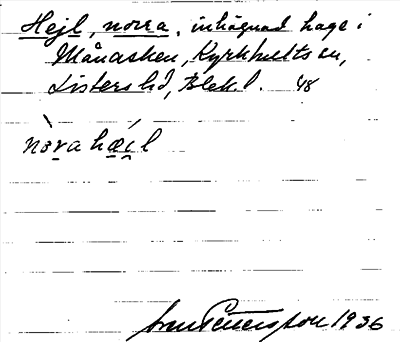 Hejl, norra, inhägnad hage i
Månasken, Kyrkhults sn,
Listers hd, Blek. l. 48
nòra hæi̯l
Pettersson 1936